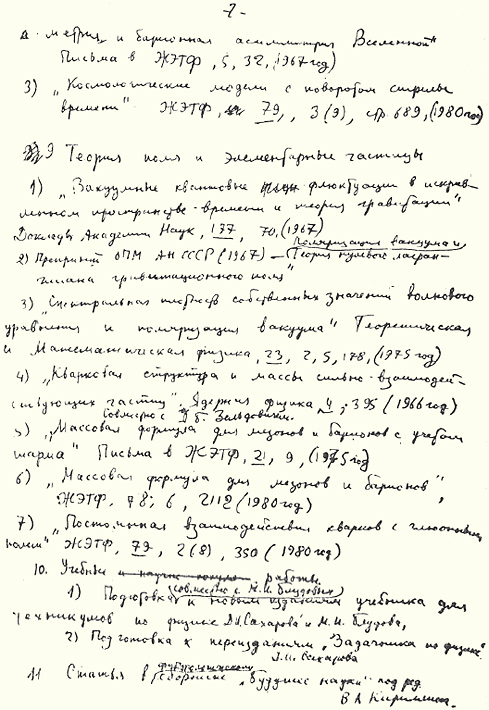 -2-
А. метрики и барионная асимметрия Вселенной"
Письма в ЖЭТФ, 5, 32, (1967 год)
3) "Космологические модели с поворотом стрелы
времени" ЖЭТФ, 79, 3(9), стр. 689, (1980 год)
9 Теория поля и элементарные частицы
1) "Вакуумные квантовые флюктуации в искрив-
ленном пространстве-времени и теория гравитации"
Доклады Академии Наук, 177, 70, (1967)
поляризация вакуума и
2) Препринт ОПМ АН СССР (1967) – "Теория нулевого лагран-
жиана гравитационного поля"
3) "Спектральная плотность собственных значений волнового
уравнения и поляризация вакуума" Теоретическая
и Математическая физика, 23, 2, 5, 178, (1975 год)
4) "Кварковая структура и массы сильно-взаимодей-
ствующих частиц". Ядерная физика 4, 395 (1966 год)
Совместно с Я. Б. Зельдовичем.
5) "Массовая формула для мезонов и барионов с учетом
шарма" Письма в ЖЭТФ, 21, 9, (1975 год)
6) "Массовая формула для мезонов и барионов",
ЖЭТФ, 78, 6, 2112 (1980 год)
7) "Постоянная взаимодействия кварков с глюонным
полем" ЖЭТФ, 79, 2(8), 350 (1980 год)
10. Учебные работы.
(совместно с М.И. Блудовым)
1) Подготовка к новым изданиям учебника для
техникумов по физике Д.И. Сахарова и М.И. Блудова,
2) Подготовка к переизданиям "Задачника по физике"
Д.И. Сахарова
11 Статья в футурологическом сборнике "Будущее науки" под ред
В А Кириллина.